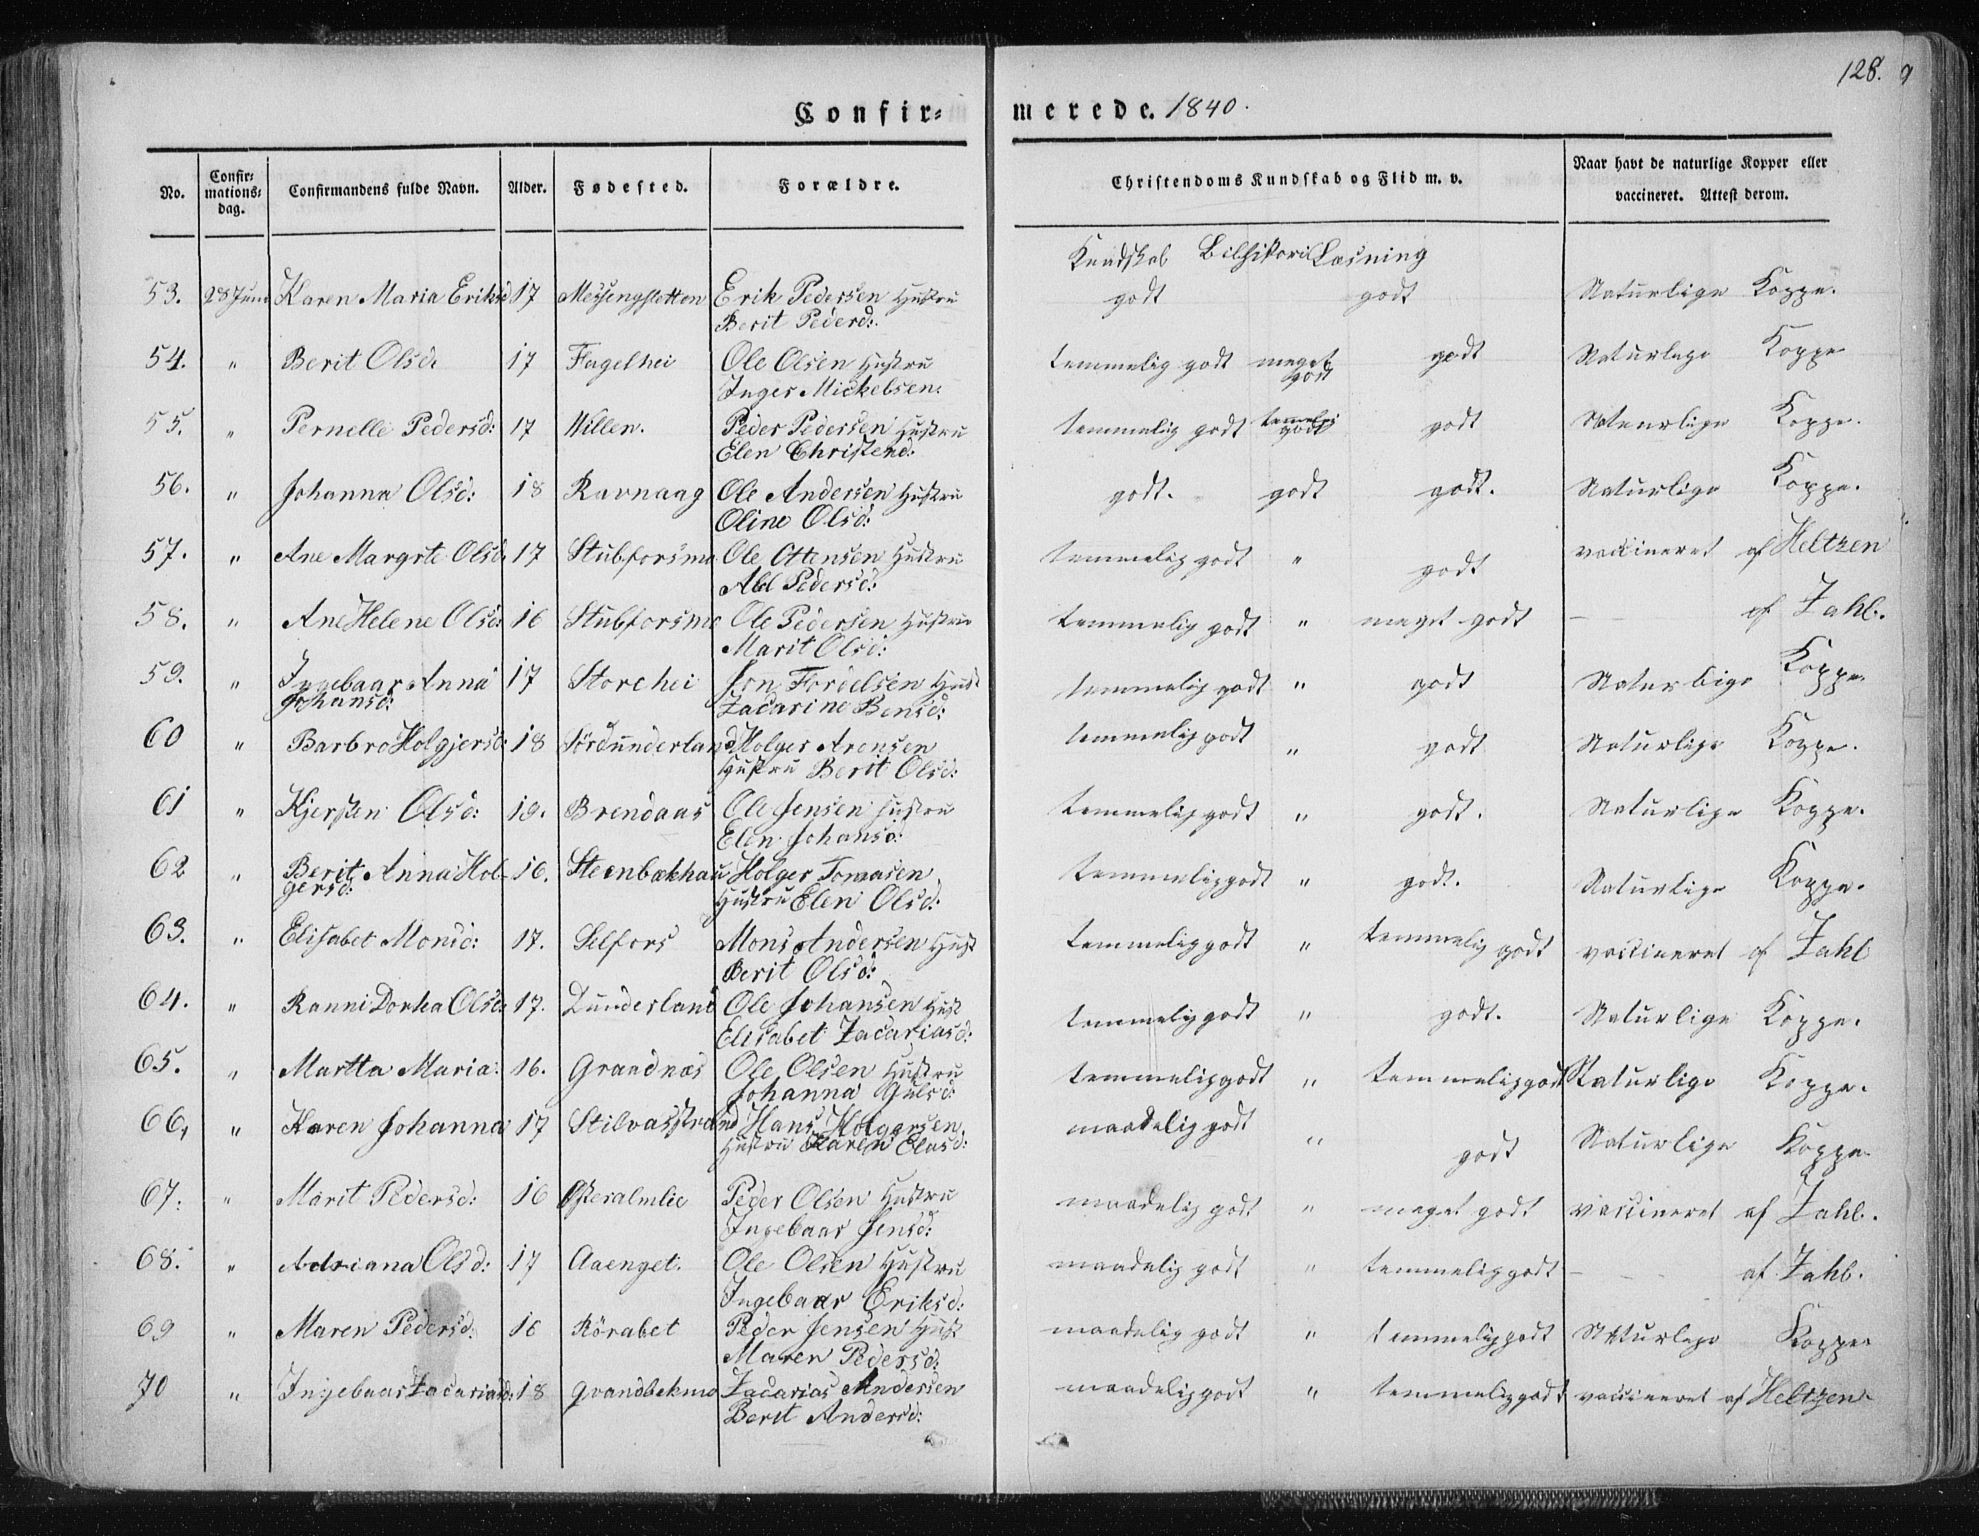 128.
Confir= merede. 1840.
No. Confir= mations= dag. Confirmandens fulde Navn. Alder. Fødested. Forældre. Christendoms Kundskab og Flid m. v. Naar havt de naturlige Kopper eller vaccineret. Attest derom.
Kundskab Bibhistorie Læsning
53. 28 Juni Karen Maria Eriksd 17 Messingslotten Erik Pedersen Hustru godt godt Naturlige Koppe.
Berit Pedersd:
54. " Berit Olsd: 17 Fagelhei Ole Olsen Hustru temmelig godt meget godt godt Naturlige Koppe
Inger Mickelsen:
55. " Pernelle Pedersd: 17 Willen. Peder Pedersen Hustru temmelig godt temmelig godt godt Naturlige Koppe.
Elen Christend:
56. " Johanna Olsd: 18 Ravnaag Ole Andersen Hustru godt. godt godt. Naturlige Koppe.
Oline Olsd:
57. " Ane Margrte Olsd 17 Stubforsmo Ole Ottensen Hustru temmelig godt " godt vaccineret af Heltzen
Abel Pedersd:
58. " Ane Helene Olsd: 16 Stubforsmo Ole Pedersen Hustru temmelig godt " meget godt — af Zahl.
Marit Olsd:
59. " Ingebaar Anna 17 Storehei Jon Fordelsen Hust temmelig godt " godt Naturlige Koppe.
Johansd: Zacarine Bensd:
60 " Barbro Holgjersd: 18 Sördunderland Holger Arensen temmelig godt " godt Naturlige Koppe.
Hustru Berit Olsd:
61 " Kjersten Olsd: 19. Brendaas Ole Jensen Hustru temmelig godt " godt. Naturlige Koppe.
Elen Johansd:
62 " Berit Anna Hol- 16. Steenbækhau Holger Tomasen temmelig godt " godt. Naturlige Koppe.
gersd: Hustru Elen Olsd:
63. " Elisabet Monsd: 17. Selfors Mons Andersen Hust temmelig godt " temmelig godt vaccineret af Zahl
Berit Olsd:
64. " Ranni Dorka Olsd: 17. Dunderland Ole Johansen Hust temmelig godt " godt. Naturlige Koppe.
Elisabet Zacariasd:
65. " Martta Maria: 16. Grandnæs Ole Olsen Hustru temmelig godt " temmelig godt Naturlige Koppe.
Johanna
66, " Karen Johanna 17 Stilvasstrand Hans Holgersen maadelig godt " godt Naturlige Koppe.
Hustru Karen
67. " Marit Pedersd: 16 Østeralmlie Peder Olsen Hustru maadelig godt " meget godt vaccineret af Zahl.
Ingebaar Jensd:
68. " Adriana Olsd: 17 Aaenget. Ole Olsen Hustru maadelig godt " temmelig godt — af Zahl.
Ingebaar Eriksd:
69 " Maren Pedersd: 16 Rörabet Peder Jensen Hust maadelig godt " temmelig godt Naturlige Koppe
Maren Pedersd:
70 " Ingebaar Zacariasd: 18 Grandbekmo Zacarias Andersen maadelig godt " temmelig godt vaccineret af Heltzen
Berit Andersd: